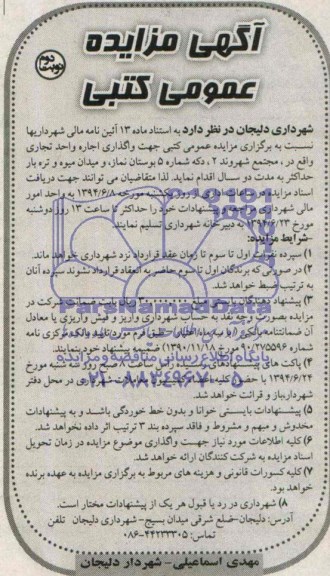 آگهی مزایده
عمومی کتبی
نوبت دوم
شهرداری دلیجان در نظر دارد به استناد ماده ۱۳ آئین نامه مالی شهرداریها
نسبت به برگزاری مزایده عمومی کتبی جهت واگذاری اجاره واحد تجاری
واقع در ، مجتمع شهروند ۲ ، دکه شماره ۵ بوستان نماز، و میدان میوه و تره بار
حداکثر به مدت دو سال اقدام نماید. لذا متقاضیان می توانند جهت دریافت
اسناد مزایده روز یکشنبه مورخه ۱۳۹۴/۶/۸ به واحد امور
مالی شهرداری پیشنهادات خود را حداکثر تا ساعت ۱۳ روز دوشنبه
مورخ ۱۳۹۴/۶/۲۳ به دبیرخانه شهرداری تسلیم نمایند.
-شرایط مزایده:
۱) سپرده نفرات اول تا سوم تا زمان عقد قرارداد نزد شهرداری خواهد ماند.
۲) در صورتی که برندگان اول تا سوم حاضر به انعقاد قرارداد نشوند سپرده آنان
به ترتیب ضبط خواهد شد.
۳) پیشنهاد دهندگان شرکت در
مزایده بصورت واریز و فیش واریزی یا معادل
آن ضمانتنامه بانکی بانک مرکزی نامه
شماره ۲۷۵۵۹۶ مورخ ۱۳۹۰/۱۱/۸ پیشنهاد خود نمایند.
۴) پاکت های ساعت ۸ صبح روز سه شنبه مورخ
۱۳۹۴/۶/۲۴ با حضور در محل دفتر
شهردار باز و قرائت خواهد شد.
۵) پیشنهادات بایستی خوانا و بدون خط خوردگی باشد و به پیشنهادات
مخدوش و مبهم و مشروط و فاقد سپرده بند ۳ ترتیب اثر داده نخواهد شد.
۶) کلیه اطلاعات مورد نیاز جهت واگذاری موضوع مزایده در زمان تحویل
اسناد مزایده به شرکت کنندگان ارائه خواهد شد.
۷) کلیه کسورات قانونی و هزینه های مربوط به برگزاری مزایده به عهده برنده
خواهد بود.
۸) شهرداری در رد یا قبول هر یک از پیشنهادات مختار است.
آدرس: دلیجان-ضلع شرقی میدان بسیج- شهرداری دلیجان تلفن
تماس: ۴۴۲۳۳۳۰۵-۰۸۶
مهدی اسماعیلی- شهردار دلیجان
ParsNamadData
پایگاه اطلاع رسانی مناقصه و مزایده
۰۲۱-۸۸۳۴۹۶۷۰-۵